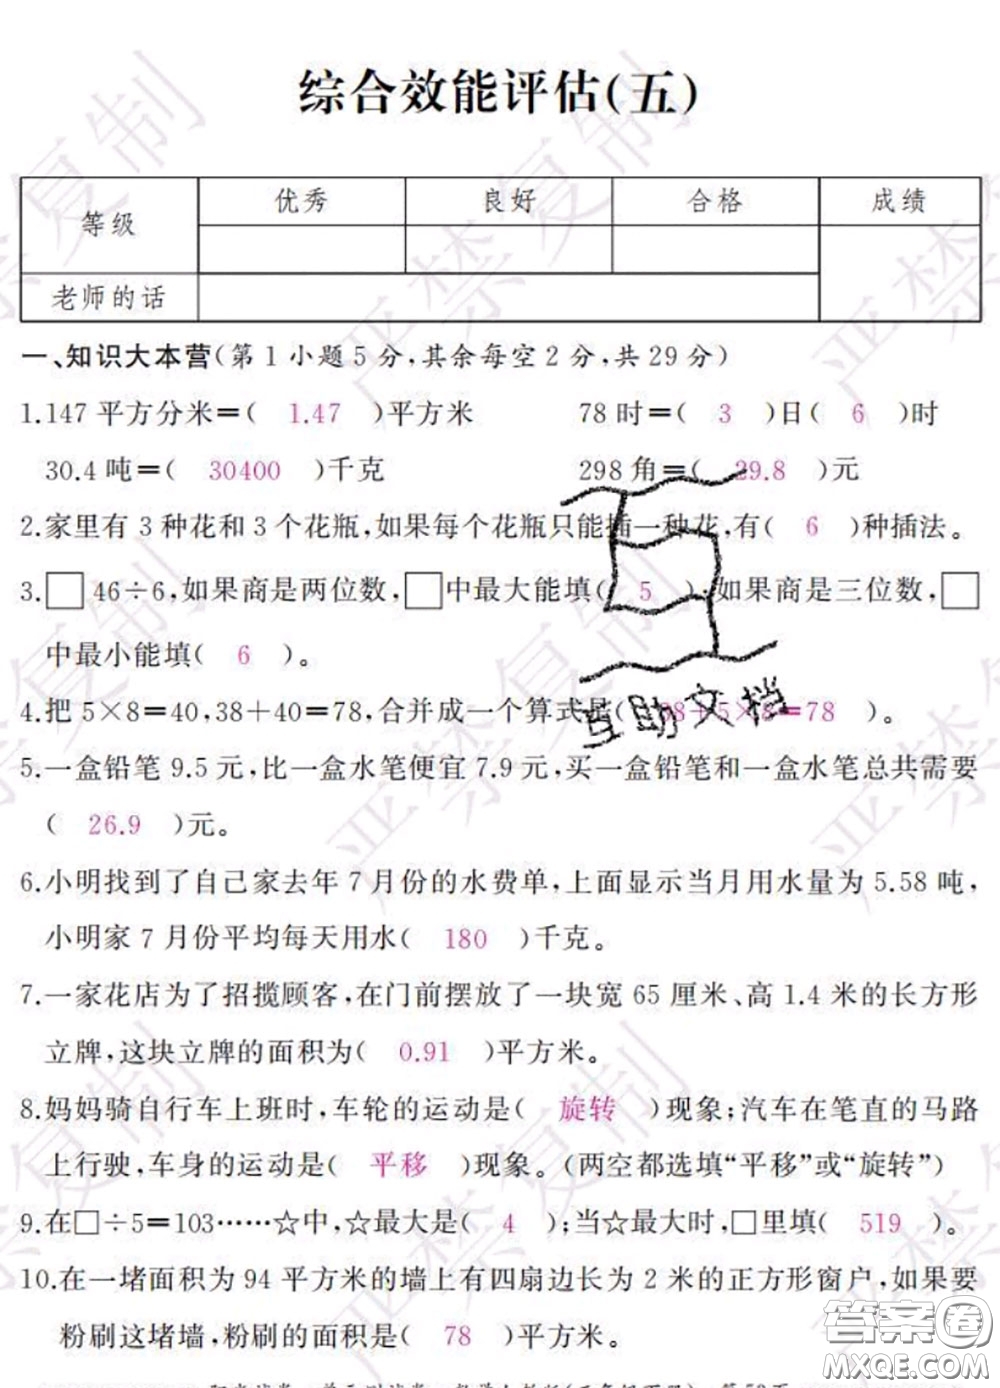 综合效能评估(五)
等级 优秀 良好 合格 成绩
老师的话
一、知识大本营(第1小题5分,其余每空2分,共29分)
1.147平方分米=( 1.47 )平方米 78时=( 3 )日( 6 )时
30.4吨=( 30400 )千克 298角=( 29.8 )元
2.家里有3种花和3个花瓶,如果每个花瓶只能插一种花,有( 6 )种插法。
3.□46÷6,如果商是两位数,□中最大能填( 5 );如果商是三位数,□
中最小能填( 6 )。
4.把5×8=40,38+40=78,合并成一个算式是( 38+5×8=78 )。
5.一盒铅笔9.5元,比一盒水笔便宜7.9元,买一盒铅笔和一盒水笔总共需要
( 26.9 )元。
6.小明找到了自己家去年7月份的水费单,上面显示当月用水量为5.58吨,
小明家7月份平均每天用水( 180 )千克。
7.一家花店为了招揽顾客,在门前摆放了一块宽65厘米、高1.4米的长方形
立牌,这块立牌的面积为( 0.91 )平方米。
8.妈妈骑自行车上班时,车轮的运动是( 旋转 )现象;汽车在笔直的马路
上行驶,车身的运动是( 平移 )现象。(两空都选填“平移”或“旋转”)
9.在□÷5=103……☆中,☆最大是( 4 );当☆最大时,□里填( 519 )。
10.在一堵面积为94平方米的墙上有四扇边长为2米的正方形窗户,如果要
粉刷这堵墙,粉刷的面积是( 78 )平方米。
严禁复制
互助文档
答案圈
MXQE.COM